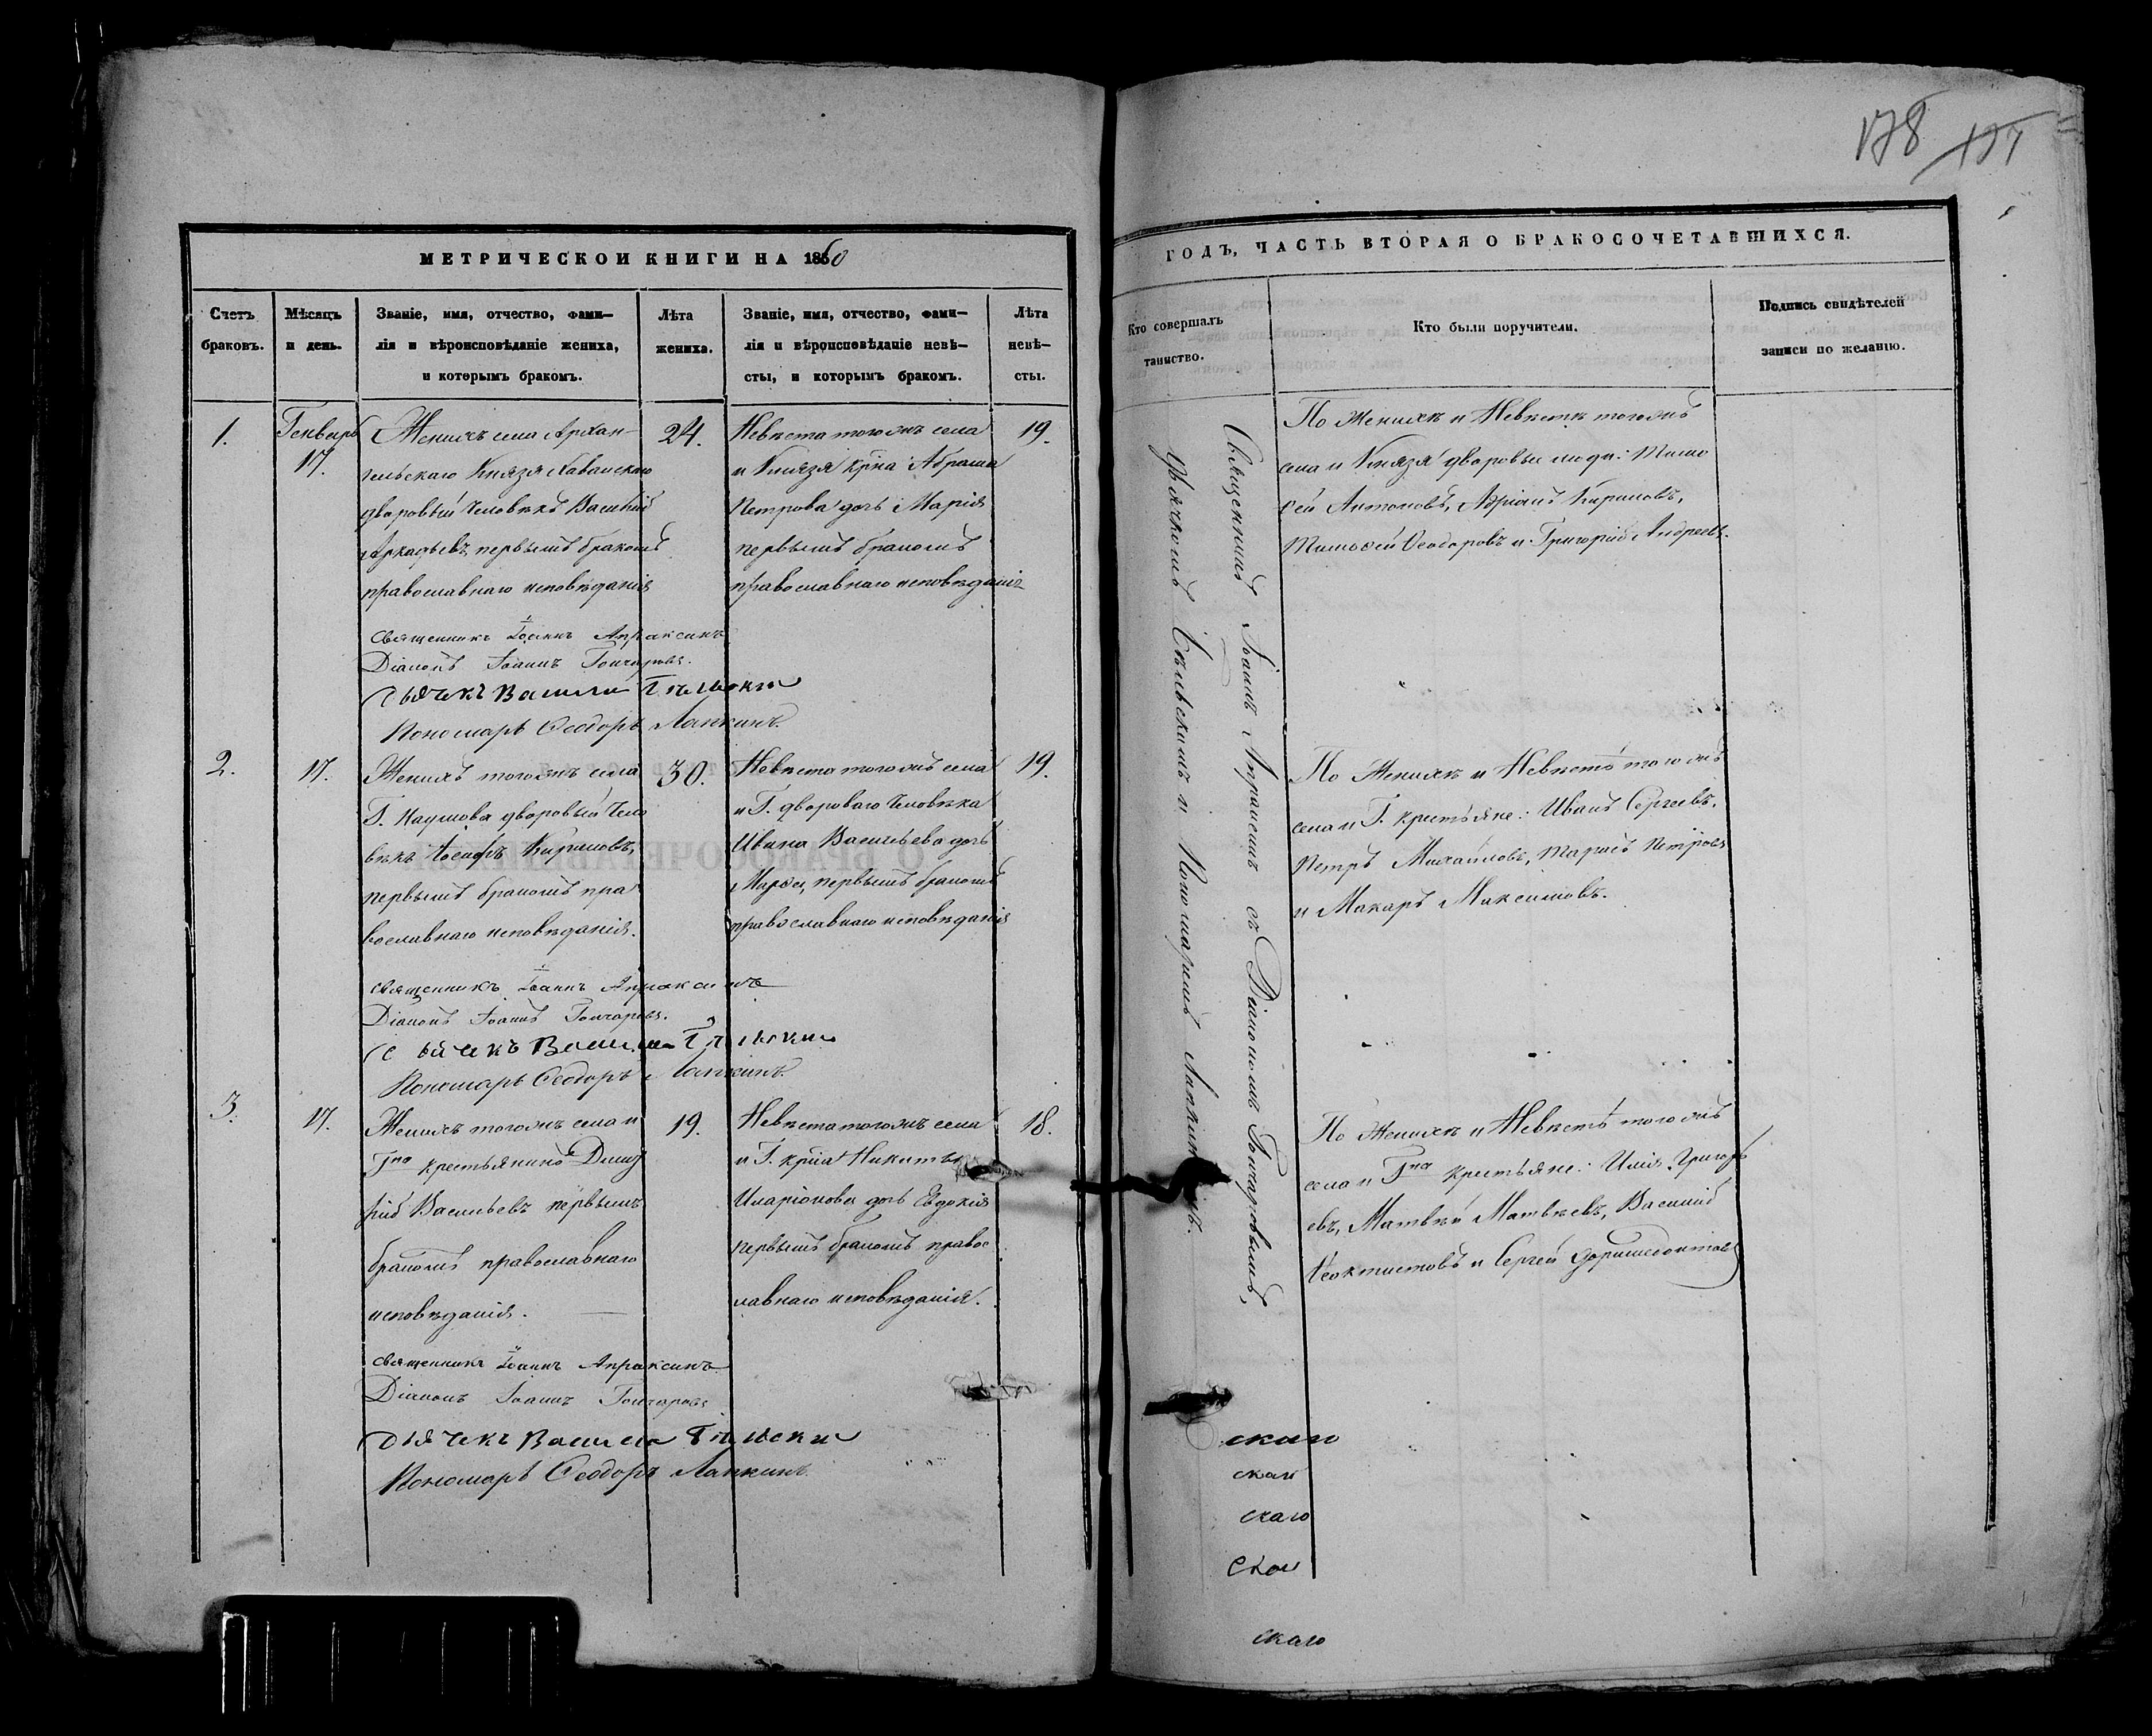 178
МЕТРИЧЕСКОЙ КНИГИ НА 1860
Счетъ браковъ.
Мѣсяцъ и день.
Званіе, имя, отчество, фами-
лія и вѣроисповѣданіе жениха,
и которымъ бракомъ.
Лѣта жениха.
Званіе, имя, отчество, фами-
лія и вѣроисповѣданіе невѣ-
сты, и которымъ бракомъ.
Лѣта невѣ-
сты.
1.
Генварь
17.
Женихъ села Архан-
гельскаго Князя
дворовый Человѣкъ Василій
Аркадьевъ, первымъ бракомъ
православнаго исповѣданія
24.
Невѣста тогожъ села
и Князя кр̃на Абрама
Петрова дочь Марія
первымъ бракомъ
православнаго исповѣданія
19.
священникъ Іоаннъ Апраксинъ
Діаконъ Іоаннъ Гончаровъ.
Дьячекъ Василій
Пономарь Ѳеодоръ Лапкинъ.
2.
17.
Женихъ тогожъ села
Г. Наумова дворовый Чело
вѣкъ Іосифъ Кириловъ,
первымъ бракомъ пра
вославнаго исповѣданія.
30.
Невѣста тогожъ села
и Г. двороваго Человѣка
Ивана Васильева дочь
Марѳа, первымъ бракомъ
православнаго исповѣданія
19.
священникъ Іоаннъ Апраксинъ
Діаконъ Іоаннъ Гончаровъ.
Дьячекъ Василій
Пономарь Ѳеодоръ Лапкинъ.
3.
17.
Женихъ тогожъ села и
Гна крестьянинъ Дмит
рій Васильевъ первымъ
бракомъ православнаго
исповѣданія.
19.
Невѣста тогожъ села
и Г. кр̃на Никиты
Иларіонова дочь Евдокія
первымъ бракомъ правос
лавнаго исповѣданія.
18.
священникъ Іоаннъ Апраксинъ
Діаконъ Іоаннъ Гончаровъ
Дьячекъ Василій
Пономарь Ѳеодоръ Лапкинъ.
ГОДЪ, ЧАСТЬ ВТОРАЯ О БРАКОСОЧЕТАВШИХСЯ.
Кто совершалъ
таинство.
Кто были поручители.
Подпись свидѣтелей
записи по желанію.
Священникъ Іоаннъ Апраксинъ съ Діакономъ Гончаровымъ,
дьячкомъ и Пономаремъ Лапкинымъ.
По Женихѣ и Невѣстѣ тогожъ
села и Князя дворовые люди: Тимо
ѳей Антоновъ, Адріанъ Кириловъ,
Тимоѳей Ѳеодоровъ и Григорій Андреевъ.
По Женихѣ и Невѣстѣ тогожъ
села и Г. крестьяне: Иванъ Сергеевъ,
Петръ Михайловъ, Тарасъ Петровъ
и Макаръ Максимовъ.
По Женихѣ и Невѣстѣ тогожъ
села и Гна крестьяне: Илія Григорь
евъ, Матвѣй Матвѣевъ, Василій
Ѳеоктистовъ и Сергей
скаго
скаго